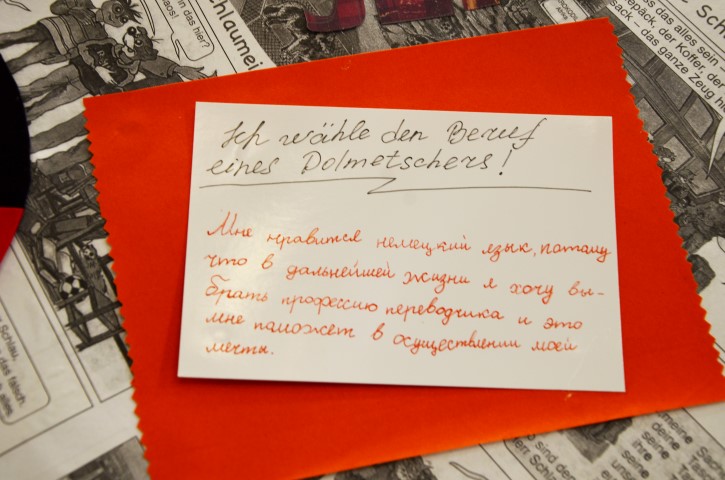 Ich wähle den Beruf
eines Dolmetschers!
Мне нравится немецкий язык, потому
что в дальнейшей жизни я хочу вы-
брать профессию переводчика и это
мне паможет в осуществлении моей
мечты.
Schlaumei
in das hier?
das alles sein –
epäck, der Koffer, der
sack – das ganze Zeug
Schlau.